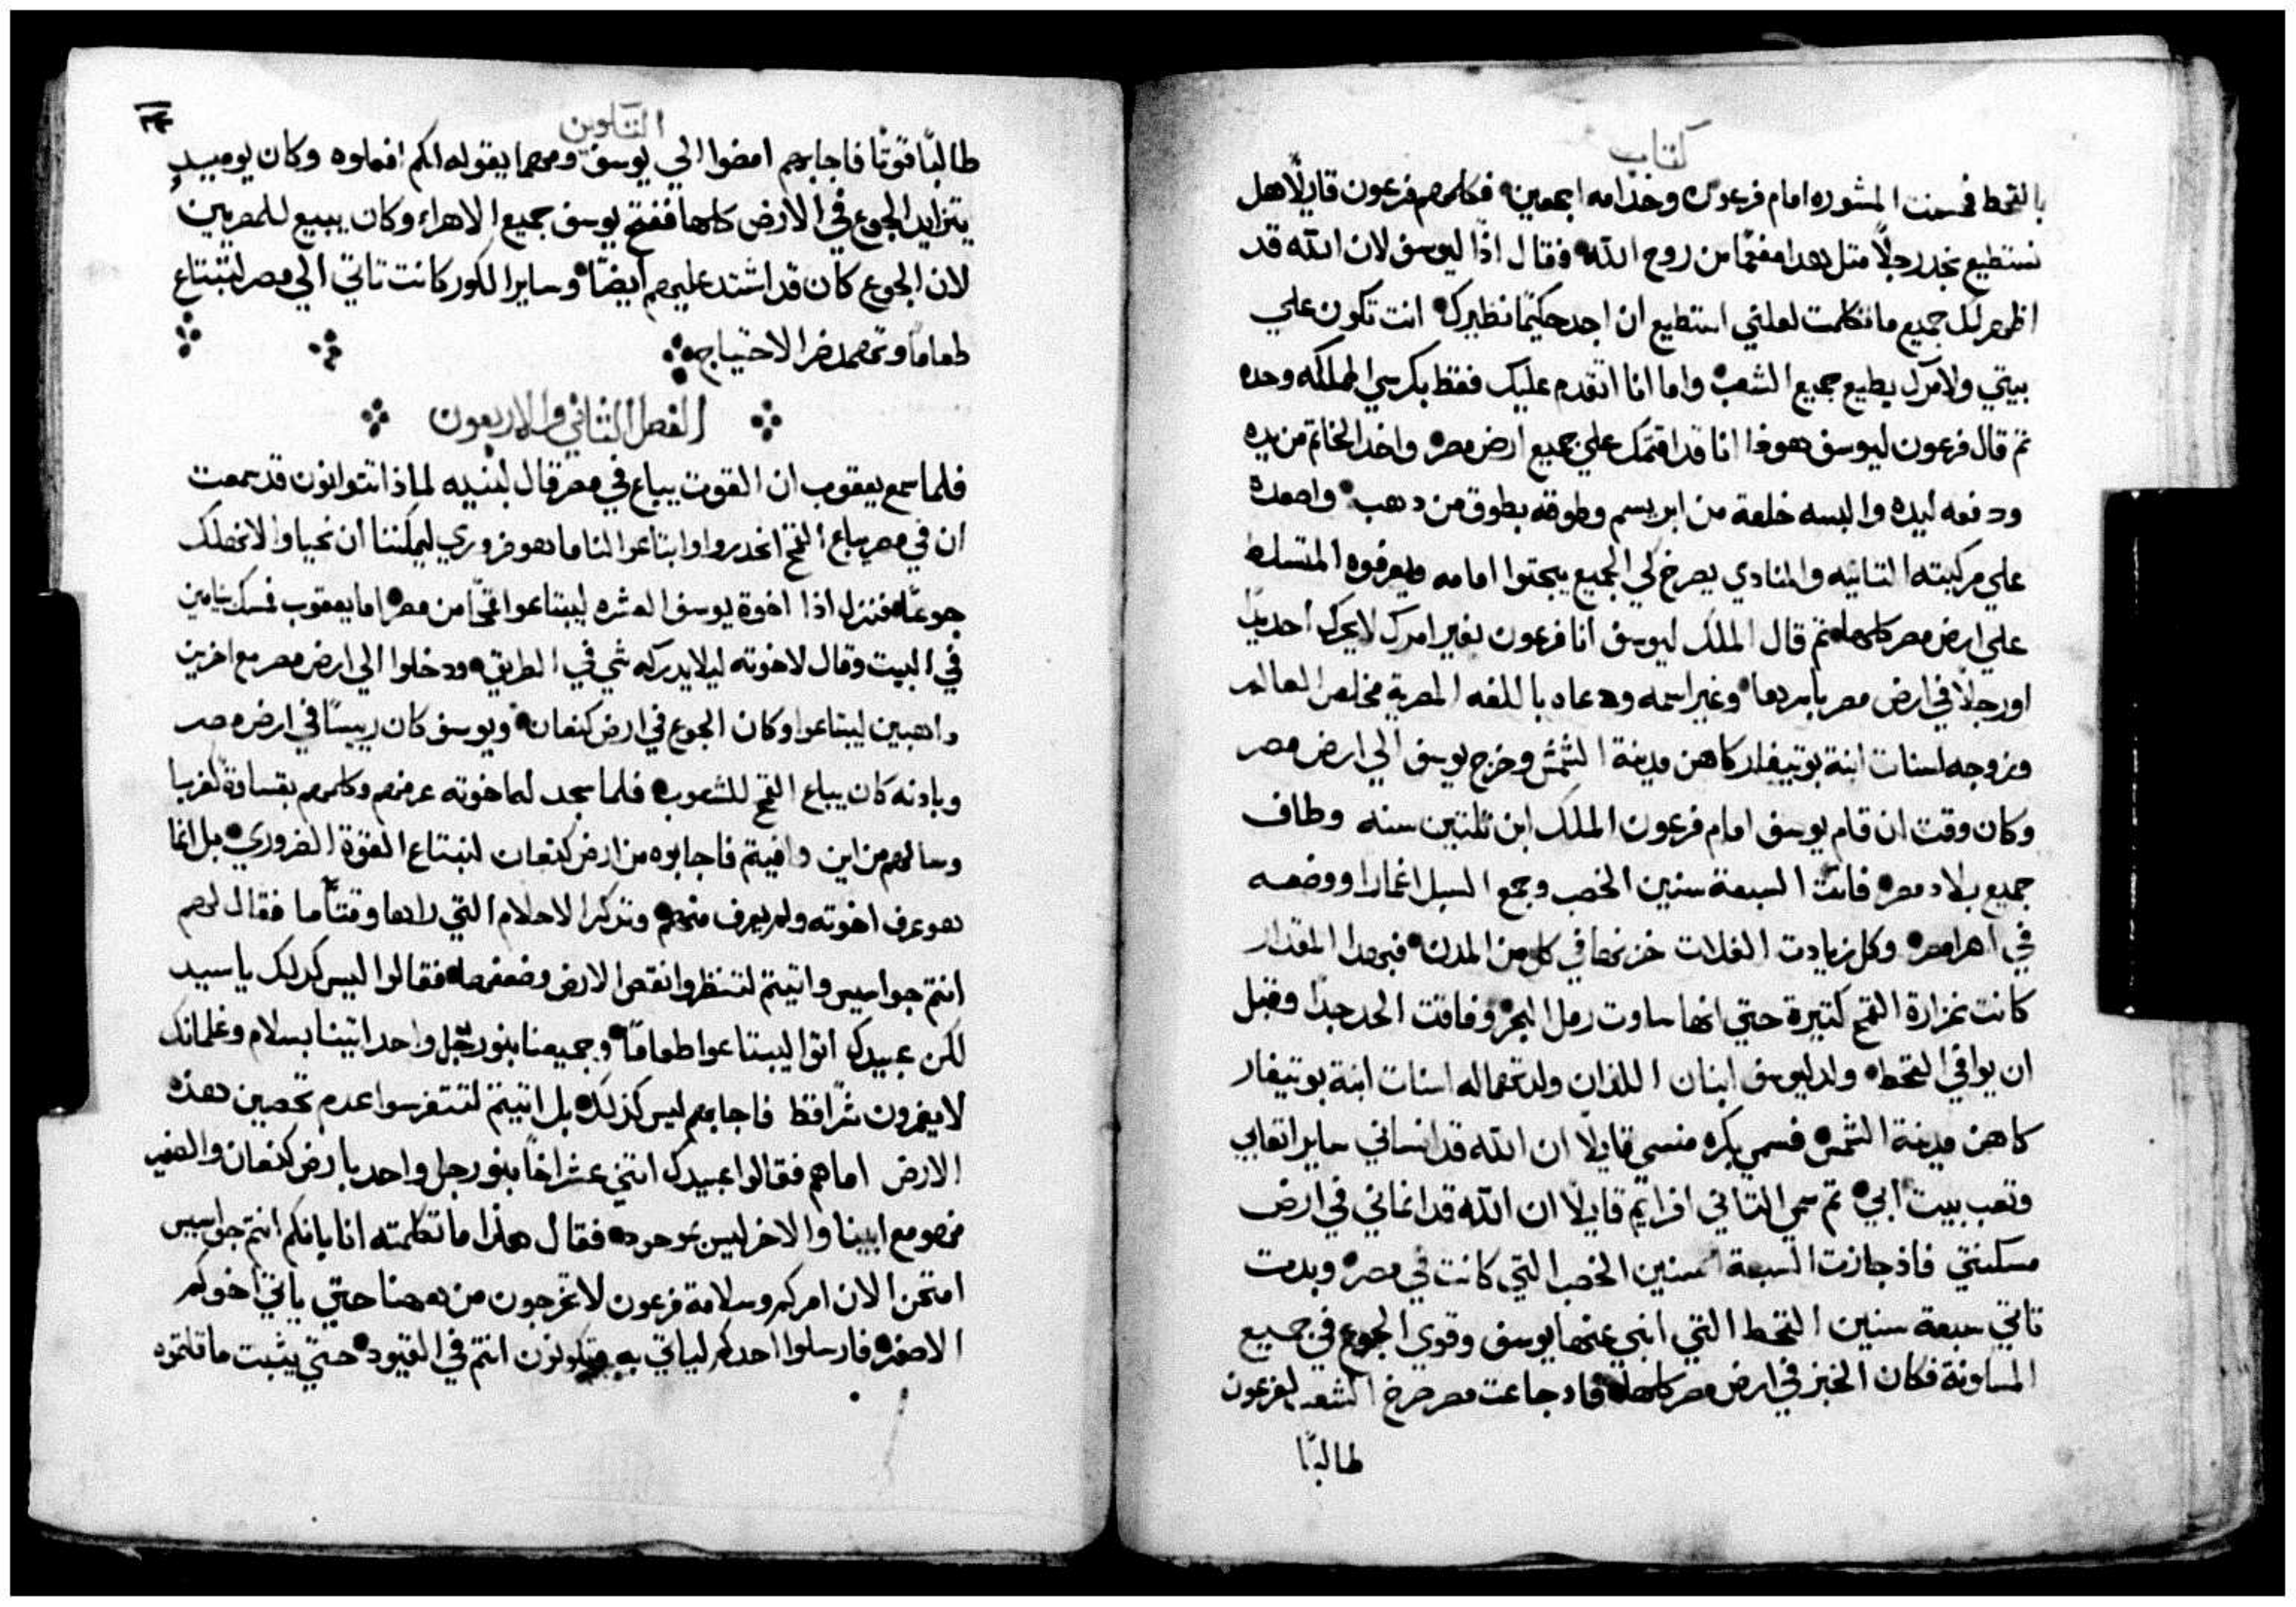 كتاب
بالقحط فحسنت المشوره امام فرعون وخدامه اجمعين فكلمهم فرعون قايلًا هل
نستطيع نجد رجلًا متل هدا مفعمًا من روح الله فقال اذًا ليوسف لان الله قد
اظهر لك جميع ما تكلمت لعلني استطيع ان اجد حكيمًا نظيرك انت تكون علي
بيتي ولامرك يطيع جميع الشعب واما انا اتقدم عليك فقط بكرسي المملكه وحده
تم قال فرعون ليوسف هوذا انا قد اقمتك علي جميع ارض مصر واخد الخاتم من يده
ودفعه ليده والبسه خلعة من ابريسم وطوقه بطوق من دهب واصعده
علي مركبته التانيه والمنادي يصرخ لكي الجميع يجتوا امامه ويعرفوه المتسلط
علي ارض مصر كلها تم قال الملك ليوسف انا فرعون بغير امرك لا يحرك احد يدًا
او رجلًا في ارض مصر باسرها وغير اسمه ودعاه باللغه المصرية مخلص العالم
وزوجه اسنات ابنة بوتيفار كاهن مدينة الشمش وخرج يوسف الي ارض مصر
وكان وقت ان قام يوسف امام فرعون الملك ابن تلتين سنه وطاف
جميع بلاد مصر فاتت السبعة سنين الخصب وجمع السبل اغمارا ووضعه
في اهرا مصر وكل زيادت الغلات خزنها في كل من المدن فبهدا المقدار
كانت غزارة القمح كتيرة حتي انها ساوت رمل البحر وفاقت الحد جدًا وقبل
ان يوافي القحط ولد ليوسف ابنان اللذان ولدتهما له اسنات ابنة بوتيفار
كاهن مدينة الشمس فسمي بكره منسي قايلًا ان الله قد انساني ساير اتعابي
وتعب بيت ابي تم سمي التاني افرايم قايلًا ان الله قد انماني في ارض
مسكنتي فاذ جازت السبعة سنين الخصب التي كانت في مصر وبدت
تاتي سبعة سنين القحط التي انبي عنها يوسف وقوي الجوع في جميع
المسكونة فكان الخبز في ارض مصر كلها فاد جاعت مصر صرخ الشعب لفرعون
طالبًا
التكوين
طالبًا قوتًا فاجابهم امضوا الي يوسف ومهما يقوله لكم افعلوه وكان يوميدٍ
يتزايد الجوع في الارض كلها ففتح يوسف جميع الاهراء وكان يبيع للمصريين
لان الجوع كان قد اشتد عليهم ايضًا وساير الكور كانت تاتي الي مصر لتبتاع
طعامًا وتمهد ضر الاحتياج
الفصل التاني والاربعون
فلما سمع يعقوب ان القوت يباع في مصر قال لبنيه لماذا تتوانون قد سمعت
ان في مصر يباع القمح انحدروا وابتاعوا لنا ما هو ضروري ليمكننا ان نحيا والا نهلك
جوعًا فنزل اذا اخوة يوسف العشره ليبتاعوا قمحًا من مصر اما يعقوب فمسك بنيامين
في البيت وقال لاخوته ليلا يدركه شي في الطريق ودخلوا الي ارض مصر مع اخرين
داهبين ليبتاعوا وكان الجوع في ارض كنعان ويوسف كان رييسًا في ارض مصر
وبادنه كان يباع القمح للشعوب فلما سجد له اخوته عرفهم وكلمهم بقساوة كغربا
وسالهم من اين وافيتم فاجابوه من ارض كنعان لنبتاع القوة الضروري بل انما
هو عرف اخوته ولم يعرف منهم وتدكر الاحلام التي راها وقتًا ما فقال لهم
انتم جواسيس واتيتم لتنظروا نقص الارض وضعفها فقالوا ليس كدلك يا سيد
لكن عبيدك اتوا ليبتاعوا طعامًا وجميعنا بنو رجل واحد اتينا بسلام وغلمانك
لا يضمرون شرًا قط فاجابهم ليس كذلك بل اتيتم لتتفرسوا عدم تحصين هذه
الارض اما هم فقالوا عبيدك اتني عشر اخًا بنو رجل واحد بارض كنعان والصغير
فهو مع ابينا والاخر ليس موجود فقال هذا ما تكلمته انا بانكم انتم جواسيس
امتحن الان امركم وسلامة فرعون لا تخرجون من ههنا حتي ياتي اخوكم
الاصغر فارسلوا احدكم لياتي به وتكونون انتم في القيود حتي يثبت ما قلتموه